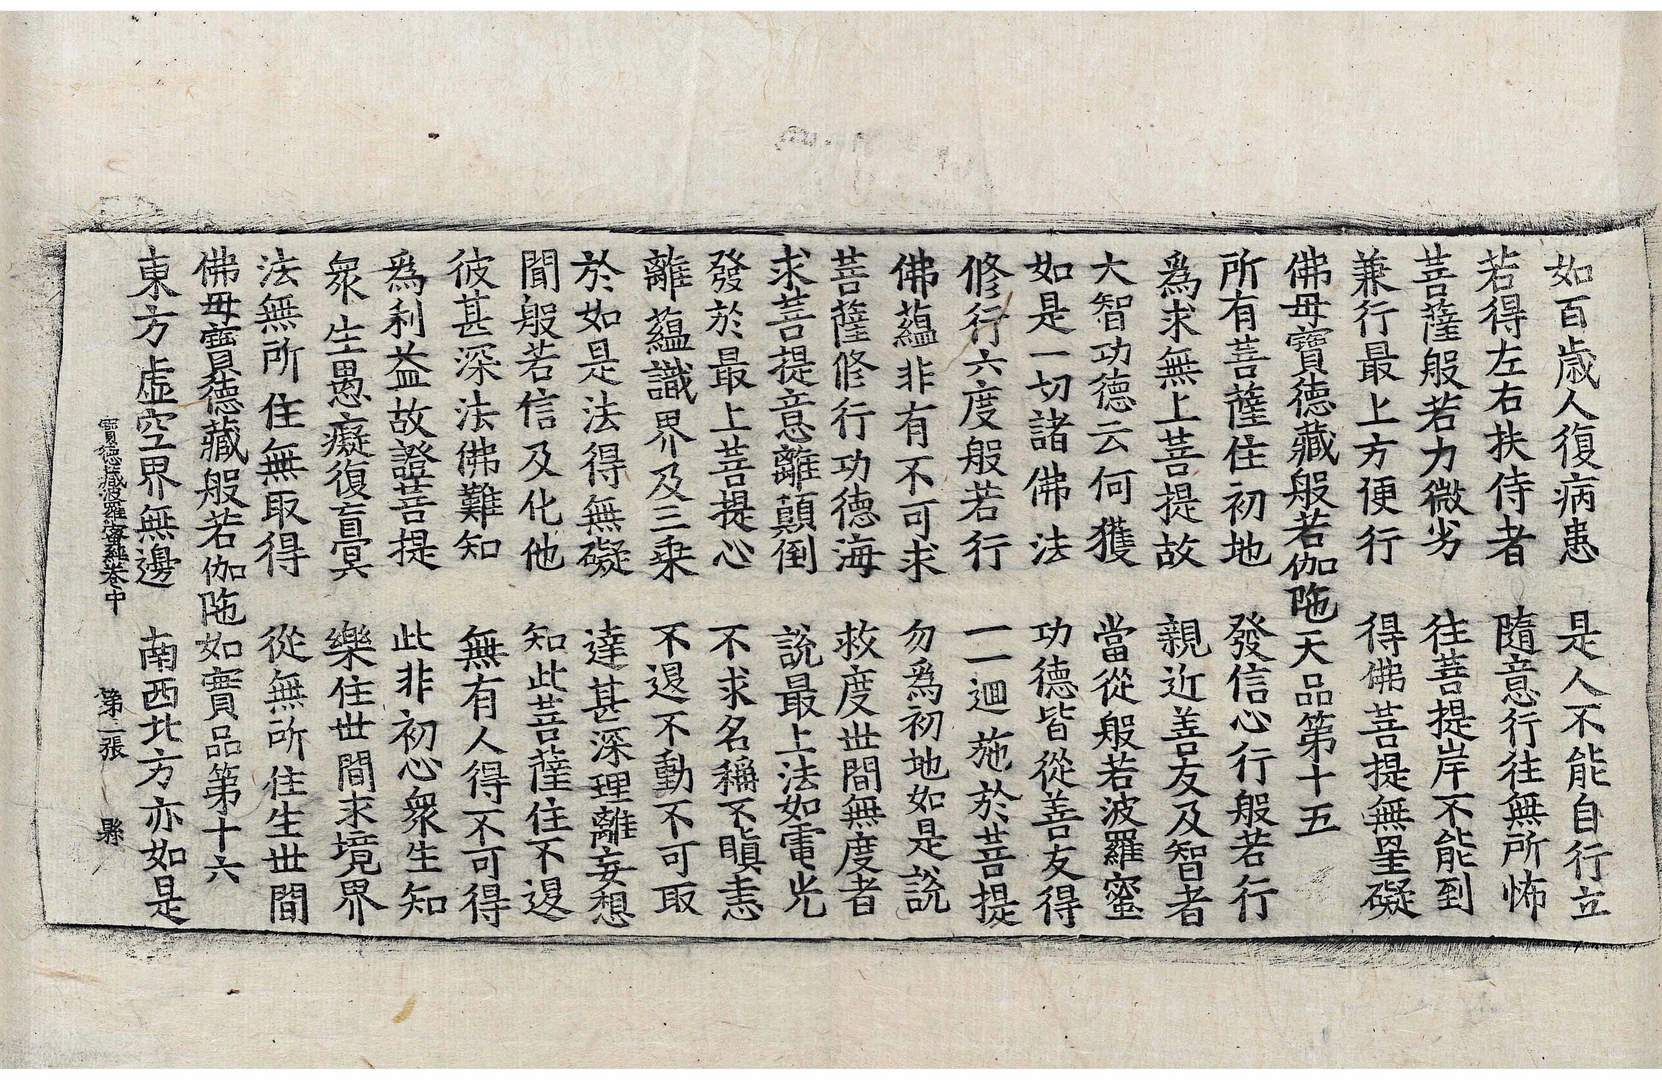 如百歲人復病患　是人不能自行立
若得左右扶侍者　隨意行往無所怖
菩薩般若力微劣　往菩提岸不能到
兼行最上方便行　得佛菩提無罣礙
佛母寶德藏般若伽陁天品第十五
所有菩薩住初地　發信心行般若行
爲求無上菩提故　親近善友及智者
大智功德云何獲　當從般若波羅蜜
如是一切諸佛法　功德皆從善友得
修行六度般若行　一一迴施於菩提
佛蘊非有不可求　勿爲初地如是說
菩薩修行功德海　救度世間無度者
求菩提意離顛倒　說最上法如電光
發於最上菩提心　不求名稱不瞋恚
離蘊識界及三乘　不退不動不可取
於如是法得無礙　達甚深理離妄想
聞般若信及化他　知此菩薩住不退
彼甚深法佛難知　無有人得不可得
爲利益故證菩提　此非初心衆生知
衆生愚癡復盲冥　樂住世間求境界
法無所住無取得　從無所住生世間
佛母寶德藏般若伽陁如實品第十六
東方虛空界無邊　南西北方亦如是
寶德藏波羅蜜經卷中　第二張　縣